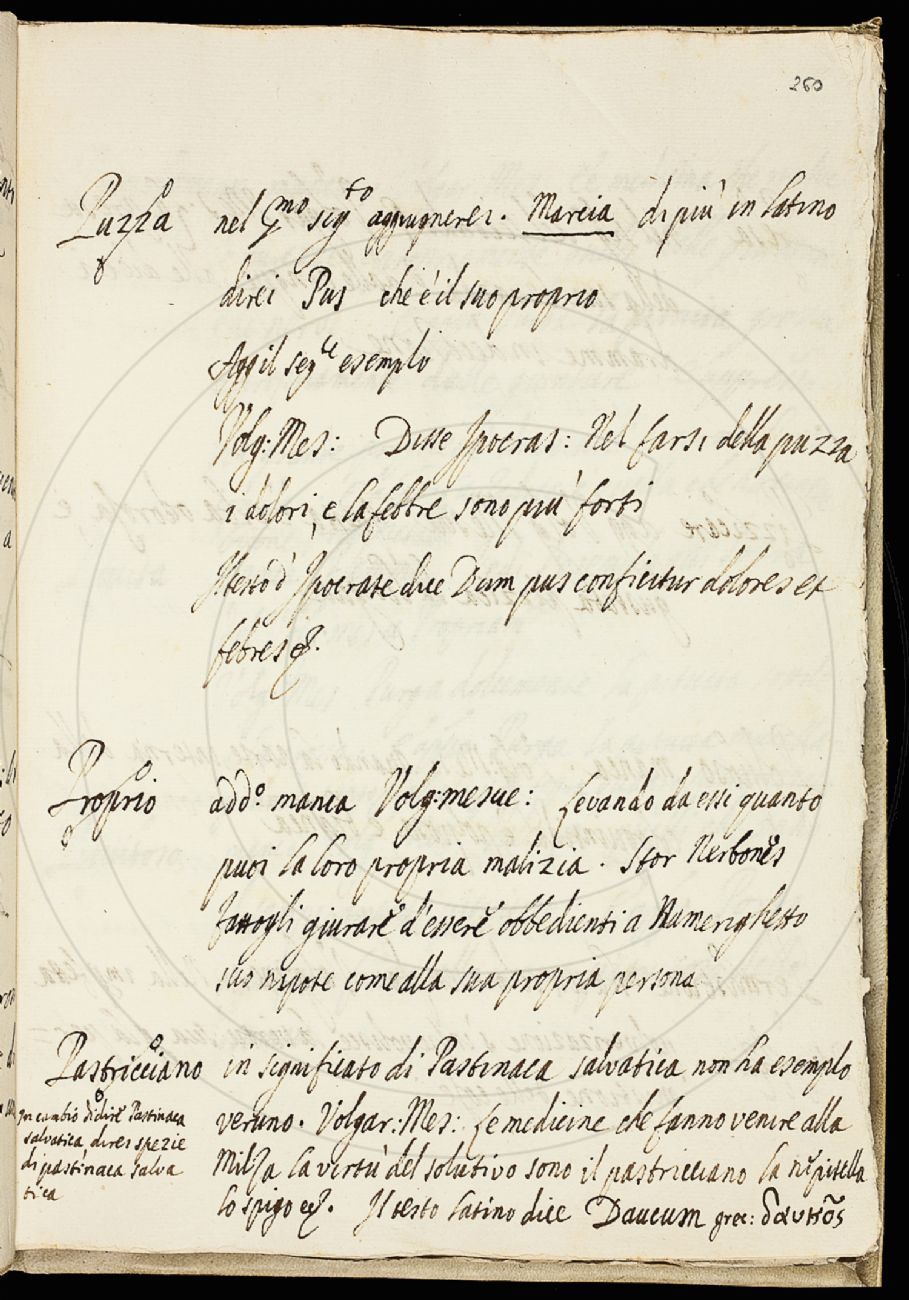 260
Puzza nel pmo sigto aggiugnerei. Marcia di più in latino
direi Pus che è il suo proprio
Agg il segte esemplo
Volg: Mes: Disse Ipocras: Nel farsi della puzza
i dolori, e la febbre sono più forti
Il testo d' Ipocrate dice Dum pus conficitur dolores et
febres &.
Proprio add.o manca Volg: mesue: Levando da essi quanto
puoi la loro propria malizia. Stor Nerbones
fattogli giurare d'essere obbedienti a Namerighetto
suo nipote come alla sua propria persona
Pastricciano in significato di Pastinaca salvatica non ha esemplo
veruno. Volgar: Mes: Le medicine che fanno venire alla
Milza la virtù del solutivo sono il pastricciano la nepitella
lo spigo &. Il testo latino dice Daucum grec:
In cambio di dire Pastinaca
salvatica direi spezie
di pastinaca salva
tica